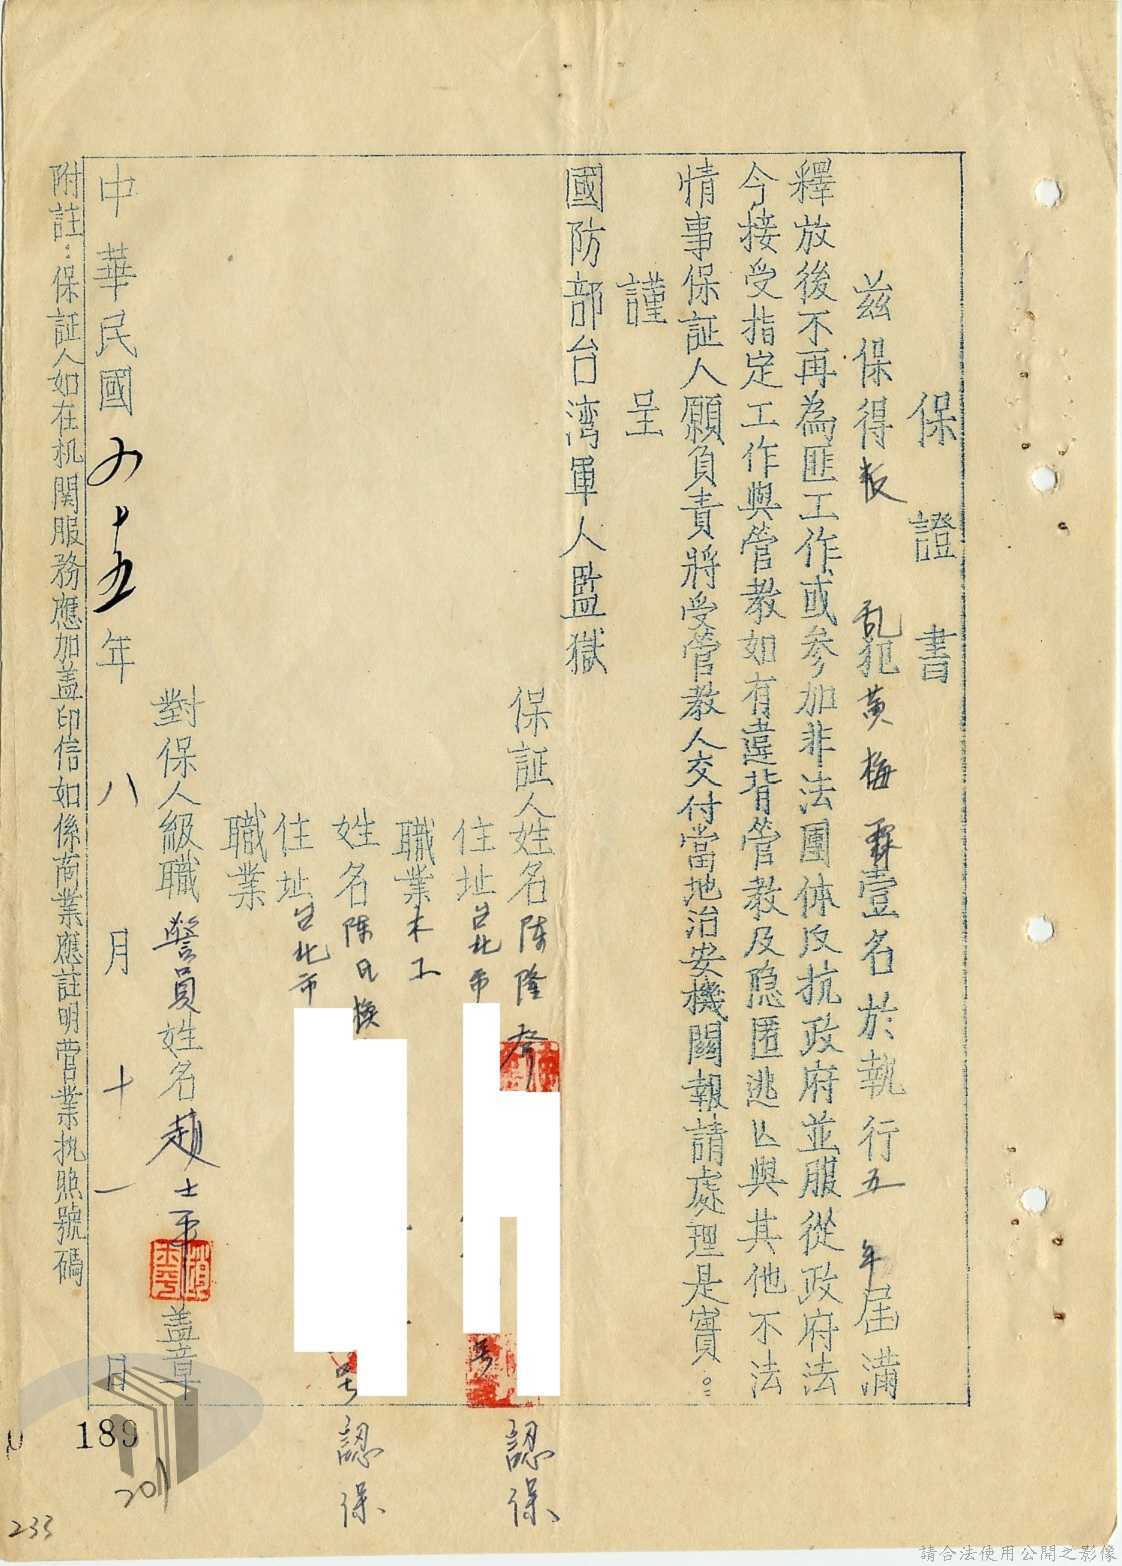 保證書
茲保得叛乱犯黃梅霖壹名於執行五年屆滿
釋放後不再為匪工作或參加非法團体反抗政府並服從政府法
令接受指定工作與管教如有違背管教及隐匿逃亡與其他不法
情事保証人願負責將受管教人交付當地治安機關報請處理是實。
謹呈
國防部台湾軍人監獄
保証人姓名陳隆 認保
住址台北市 号
職業木工
姓名陳 認保
住址台北市 号
職業
對保人級職警員姓名趙士平蓋章
中華民國五十五年八月十一日
附註：保証人如在机關服務應加盖印信如係商業應註明營業执照號碼
189
201
233
請合法使用公開之影像